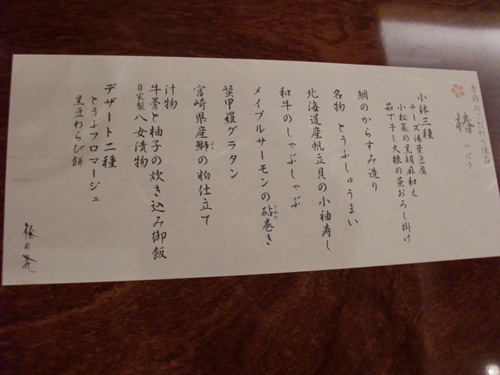 季節のこだわり懐石
椿
つばき
小鉢三種
チーズ湯葉豆腐
小松菜の黒胡麻和え
茹で干し大根の葉おろし掛け
鯛のからすみ造り
名物 とうふしゅうまい
北海道産帆立貝の小袖寿し
和牛のしゃぶしゃぶ
メイプルサーモンの砧巻き
きぬた
蟹甲羅グラタン
宮崎県産鰤の粕仕立て
汁物
牛蒡と柚子の炊き込み御飯
自家製 八女漬物
デザート二種
とうふフロマージュ
黒豆わらび餅